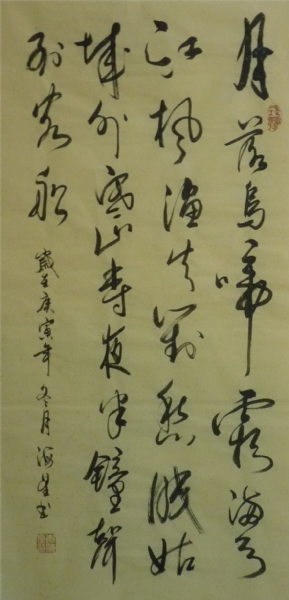 月落烏啼霜滿天
江楓漁火對愁眠姑
城外寒山寺夜半鐘聲
到客船
歲在庚寅年冬月海生书